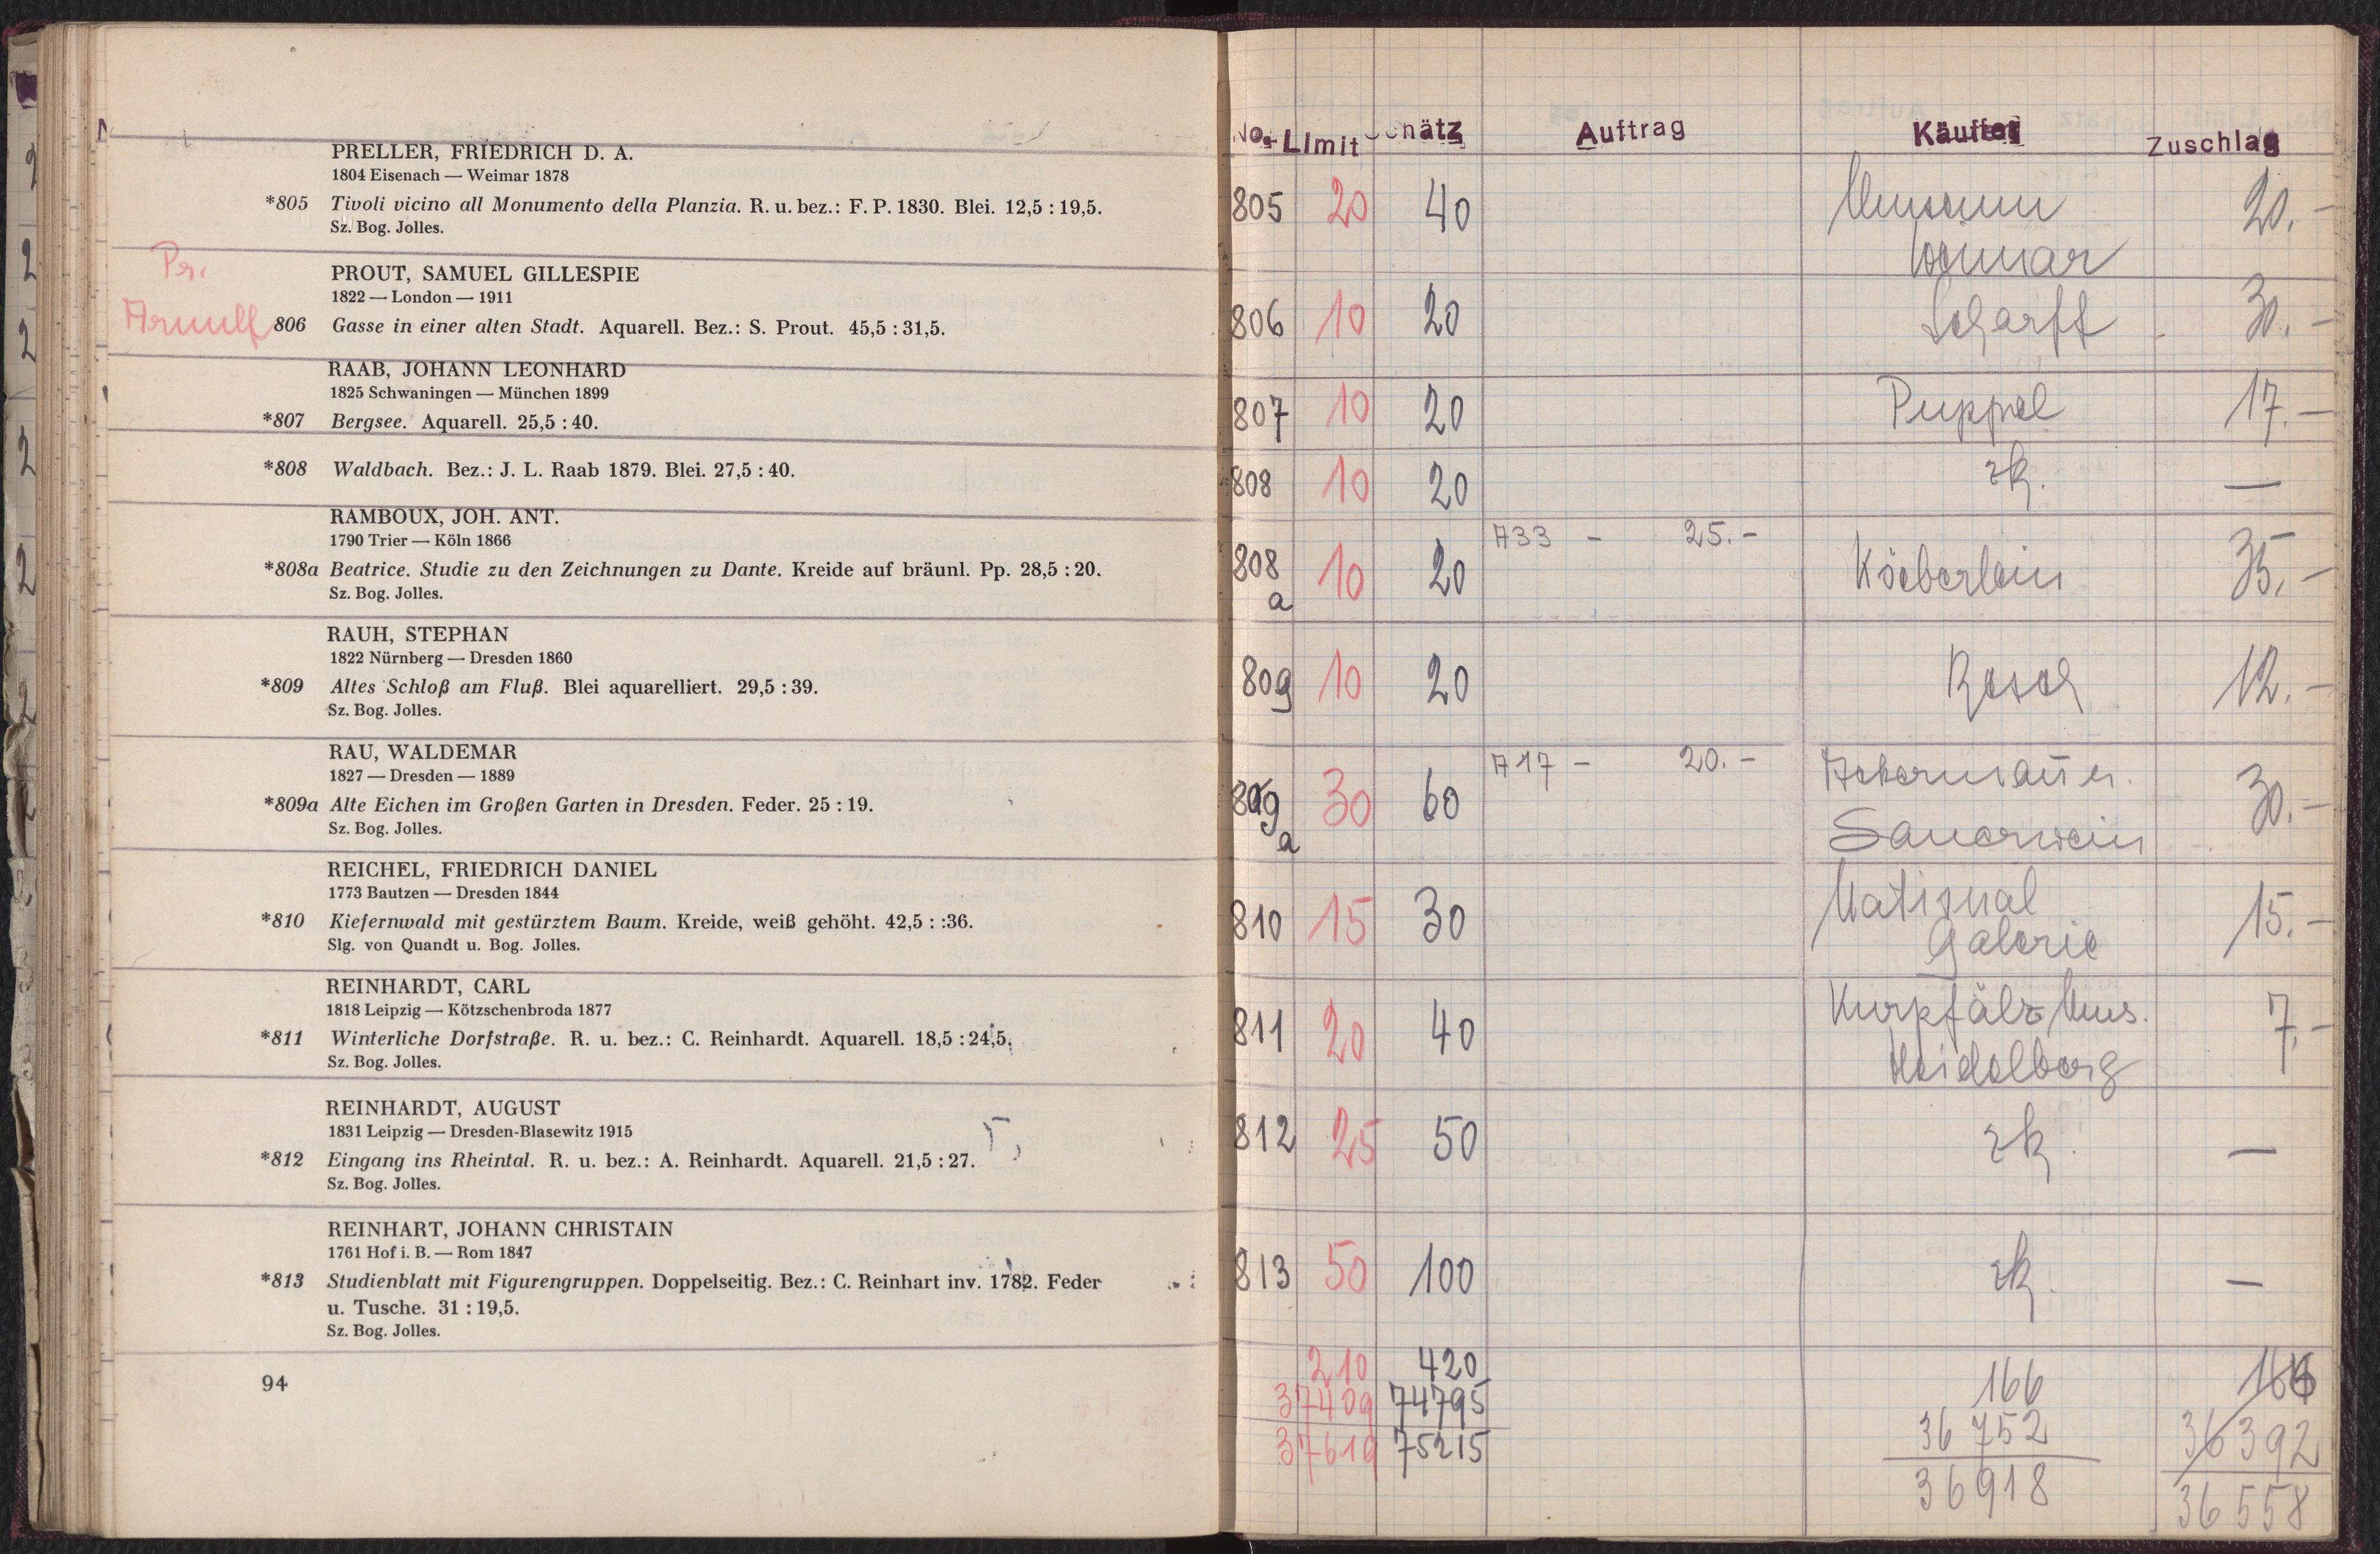 PRELLER, FRIEDRICH D. A.
1804 Eisenach — Weimar 1878
*805 Tivoli vicino all Monumento della Planzia. R. u. bez.: F. P. 1830. Blei. 12,5 : 19,5.
Sz. Bog. Jolles.
Pr.
PROUT, SAMUEL GILLESPIE
1822 — London — 1911
806 Gasse in einer alten Stadt. Aquarell. Bez.: S. Prout. 45,5 : 31,5.
RAAB, JOHANN LEONHARD
1825 Schwaningen — München 1899
*807 Bergsee. Aquarell. 25,5 : 40.
*808 Waldbach. Bez.: J. L. Raab 1879. Blei. 27,5 : 40.
RAMBOUX, JOH. ANT.
1790 Trier — Köln 1866
*808a Beatrice. Studie zu den Zeichnungen zu Dante. Kreide auf bräunl. Pp. 28,5 : 20.
Sz. Bog. Jolles.
RAUH, STEPHAN
1822 Nürnberg — Dresden 1860
*809 Altes Schloß am Fluß. Blei aquarelliert. 29,5 : 39.
Sz. Bog. Jolles.
RAU, WALDEMAR
1827 — Dresden — 1889
*809a Alte Eichen im Großen Garten in Dresden. Feder. 25 : 19.
Sz. Bog. Jolles.
REICHEL, FRIEDRICH DANIEL
1773 Bautzen — Dresden 1844
*810 Kiefernwald mit gestürztem Baum. Kreide, weiß gehöht. 42,5 : :36.
Slg. von Quandt u. Bog. Jolles.
REINHARDT, CARL
1818 Leipzig — Kötzschenbroda 1877
*811 Winterliche Dorfstraße. R. u. bez.: C. Reinhardt. Aquarell. 18,5 : 24,5.
Sz. Bog. Jolles.
REINHARDT, AUGUST
1831 Leipzig — Dresden-Blasewitz 1915
*812 Eingang ins Rheintal. R. u. bez.: A. Reinhardt. Aquarell. 21,5 : 27.
Sz. Bog. Jolles.
REINHART, JOHANN CHRISTAIN
1761 Hof i. B. — Rom 1847
*813 Studienblatt mit Figurengruppen. Doppelseitig. Bez.: C. Reinhart inv. 1782. Feder
u. Tusche. 31 : 19,5.
Sz. Bog. Jolles.
94
No. Limit Schätz Auftrag Käufer Zuschlag
805 20 40 Museum 20.—
Weimar
806 10 20 Scharff 30.—
807 10 20 Puppel 17.—
808 10 20 zk. —
A33 – 25.–
808 a 10 20 Köeberlein 35.—
809 10 20 Rosch 12.—
A17 – 20.–
809 a 30 60 Sauerwein 30.—
810 15 30 National 15.—
Galerie
811 20 40 Kurpfälz Mus. 7.—
Heidelberg
812 25 50 zk. —
813 50 100 zk. —
210 420 166 166
37409 74795 36 752 36392
37619 75215 36918 36558